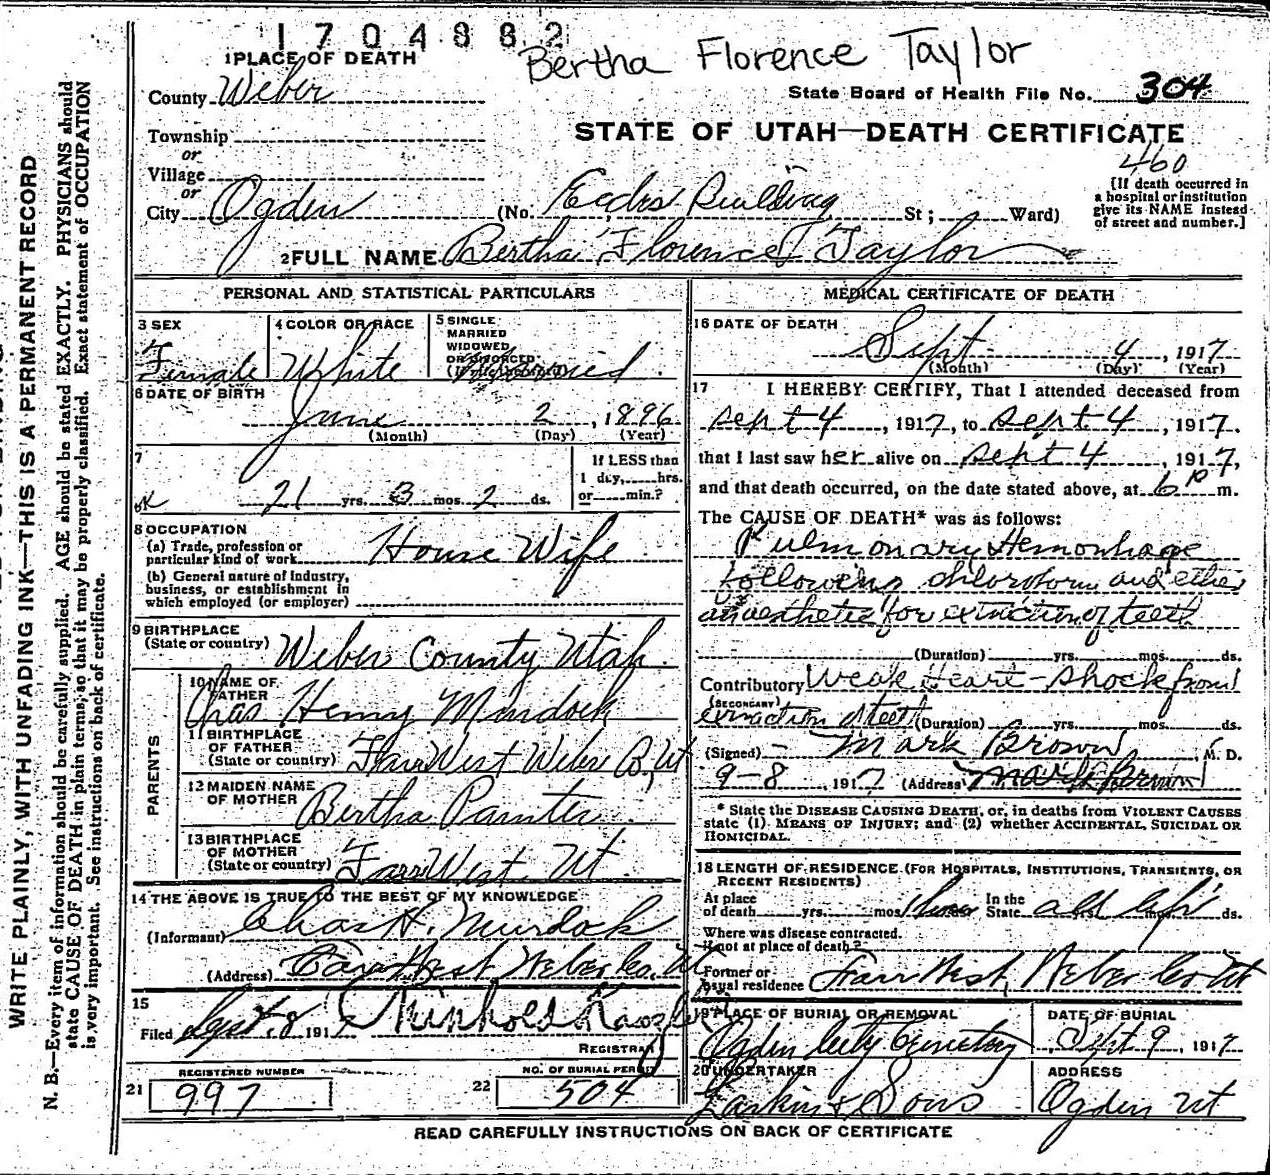 1704882
Bertha Florence Taylor
1 PLACE OF DEATH
County Weber
State Board of Health File No. 304
Township
or
STATE OF UTAH—DEATH CERTIFICATE
460
Village
or
City Ogden (No. Eccles Building St; Ward)
[If death occurred in
a hospital or institution
give its NAME instead
of street and number.]
2 FULL NAME Bertha Florence Taylor
PERSONAL AND STATISTICAL PARTICULARS
3 SEX
Female
4 COLOR OR RACE
White
5 SINGLE
MARRIED
WIDOWED
OR DIVORCED
Married
6 DATE OF BIRTH
June 2, 1896
(Month) (Day) (Year)
7
21 yrs. 3 mos. 2 ds.
If LESS than
1 day, hrs.
or min.?
8 OCCUPATION
(a) Trade, profession or
particular kind of work House Wife
(b) General nature of Industry,
business, or establishment in
which employed (or employer)
9 BIRTHPLACE
(State or country) Weber County Utah
PARENTS
10 NAME OF
FATHER
Chas Henry Murdock
11 BIRTHPLACE
OF FATHER
(State or country) Farr West Weber Co, Ut
12 MAIDEN NAME
OF MOTHER
Bertha Painter
13 BIRTHPLACE
OF MOTHER
(State or country) Farr West Ut
14 THE ABOVE IS TRUE TO THE BEST OF MY KNOWLEDGE
(Informant) Chas H. Murdock
(Address) Farr West Weber Co. Ut
15
Filed Sept. 8 1917
REGISTRAR
REGISTERED NUMBER
21 997
NO. OF BURIAL PERMIT
22 504
MEDICAL CERTIFICATE OF DEATH
16 DATE OF DEATH
Sept 4, 1917
(Month) (Day) (Year)
17 I HEREBY CERTIFY, That I attended deceased from
Sept 4, 1917, to Sept 4, 1917.
that I last saw her alive on Sept 4, 1917,
and that death occurred, on the date stated above, at 6 P m.
The CAUSE OF DEATH* was as follows:
Pulmonary Hemorrhage
following chloroform and ether
anaesthetic for extraction of teeth
(Duration) yrs. mos. ds.
Contributory Weak Heart - Shock from
(SECONDARY)
extraction teeth (Duration) yrs. mos. ds.
(Signed) Mark Brown, M. D.
9-8, 1917 (Address) Mark Brown
* State the DISEASE CAUSING DEATH, or, in deaths from VIOLENT CAUSES
state (1) MEANS OF INJURY; and (2) whether ACCIDENTAL, SUICIDAL OR
HOMICIDAL.
18 LENGTH OF RESIDENCE (FOR HOSPITALS, INSTITUTIONS, TRANSIENTS, OR
RECENT RESIDENTS)
At place
of death yrs. mos. In the
State all life ds.
Where was disease contracted.
if not at place of death?
Former or
usual residence Farr West, Weber Co Ut
19 PLACE OF BURIAL OR REMOVAL
Ogden City Cemetery
DATE OF BURIAL
Sept 9, 1917
20 UNDERTAKER
Larkin & Sons
ADDRESS
Ogden Ut
READ CAREFULLY INSTRUCTIONS ON BACK OF CERTIFICATE
WRITE PLAINLY, WITH UNFADING INK—THIS IS A PERMANENT RECORD
N. B.—Every item of information should be carefully supplied. AGE should be stated EXACTLY. PHYSICIANS should
state CAUSE OF DEATH in plain terms, so that it may be properly classified. Exact statement of OCCUPATION
is very important. See instructions on back of certificate.